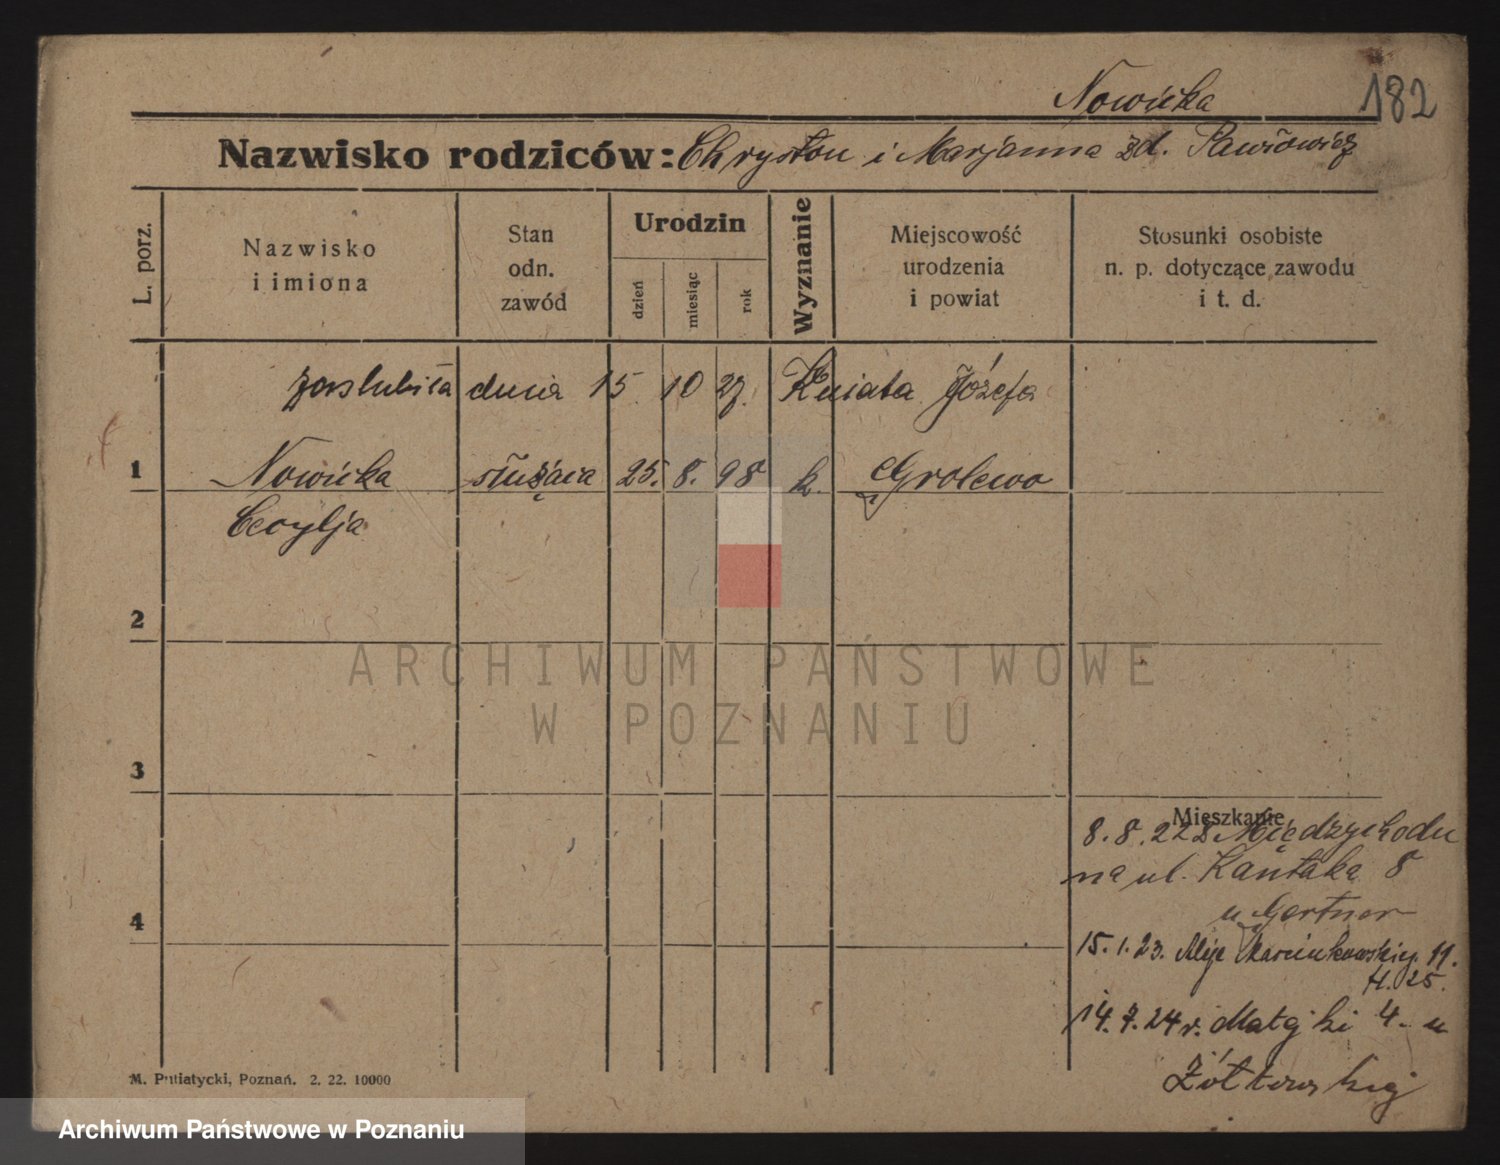 Nowicka
182
Nazwisko rodziców: Chryston i Marjanna zd. Pawłowicz
L. porz.
Nazwisko
i imiona
Stan
odn.
zawód
Urodzin
dzień
miesiąc
rok
Wyznanie
Miejscowość
urodzenia
i powiat
Stosunki osobiste
n. p. dotyczące zawodu
i t. d.
zaslubiła dnia 15 10 27. Kwiata Józefa
1 Nowicka służąca 25. 8. 98 k. Grolewo
Cecylja
2
ARCHIWUM PAŃSTWOWE
W POZNANIU
3
Mieszkanie
8.8.22 z Międzychodu
na ul. Kantaka 8
4
u Gertner
15.1.23. Aleje Marcinkowskieg. 11.
H. 25.
14.7.24 r. Matejki 4. u
Żółtowskiej
M. Putiatycki, Poznań. 2. 22. 10000
Archiwum Państwowe w Poznaniu